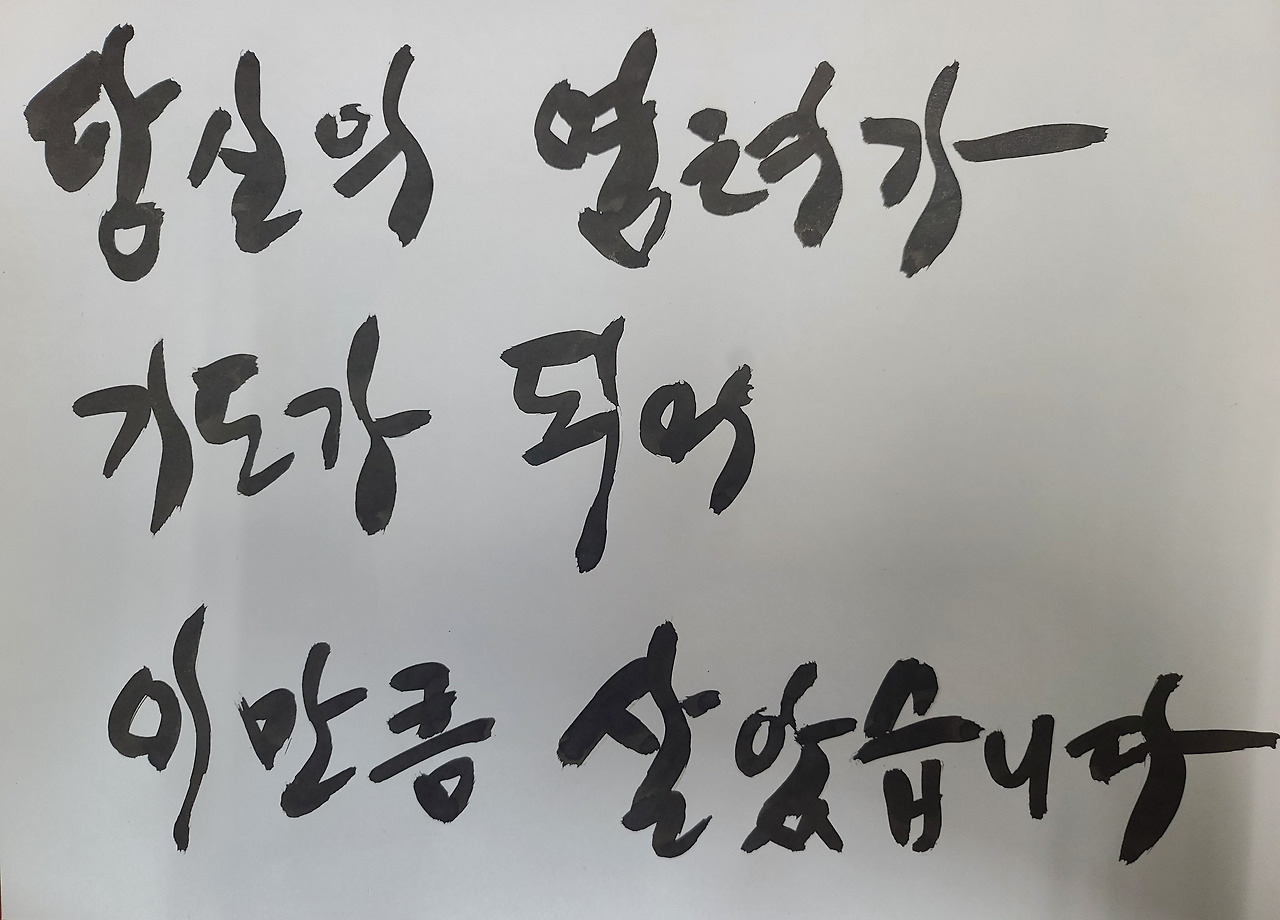 당신의 염려가
기도가 되어
이만큼 살았습니다